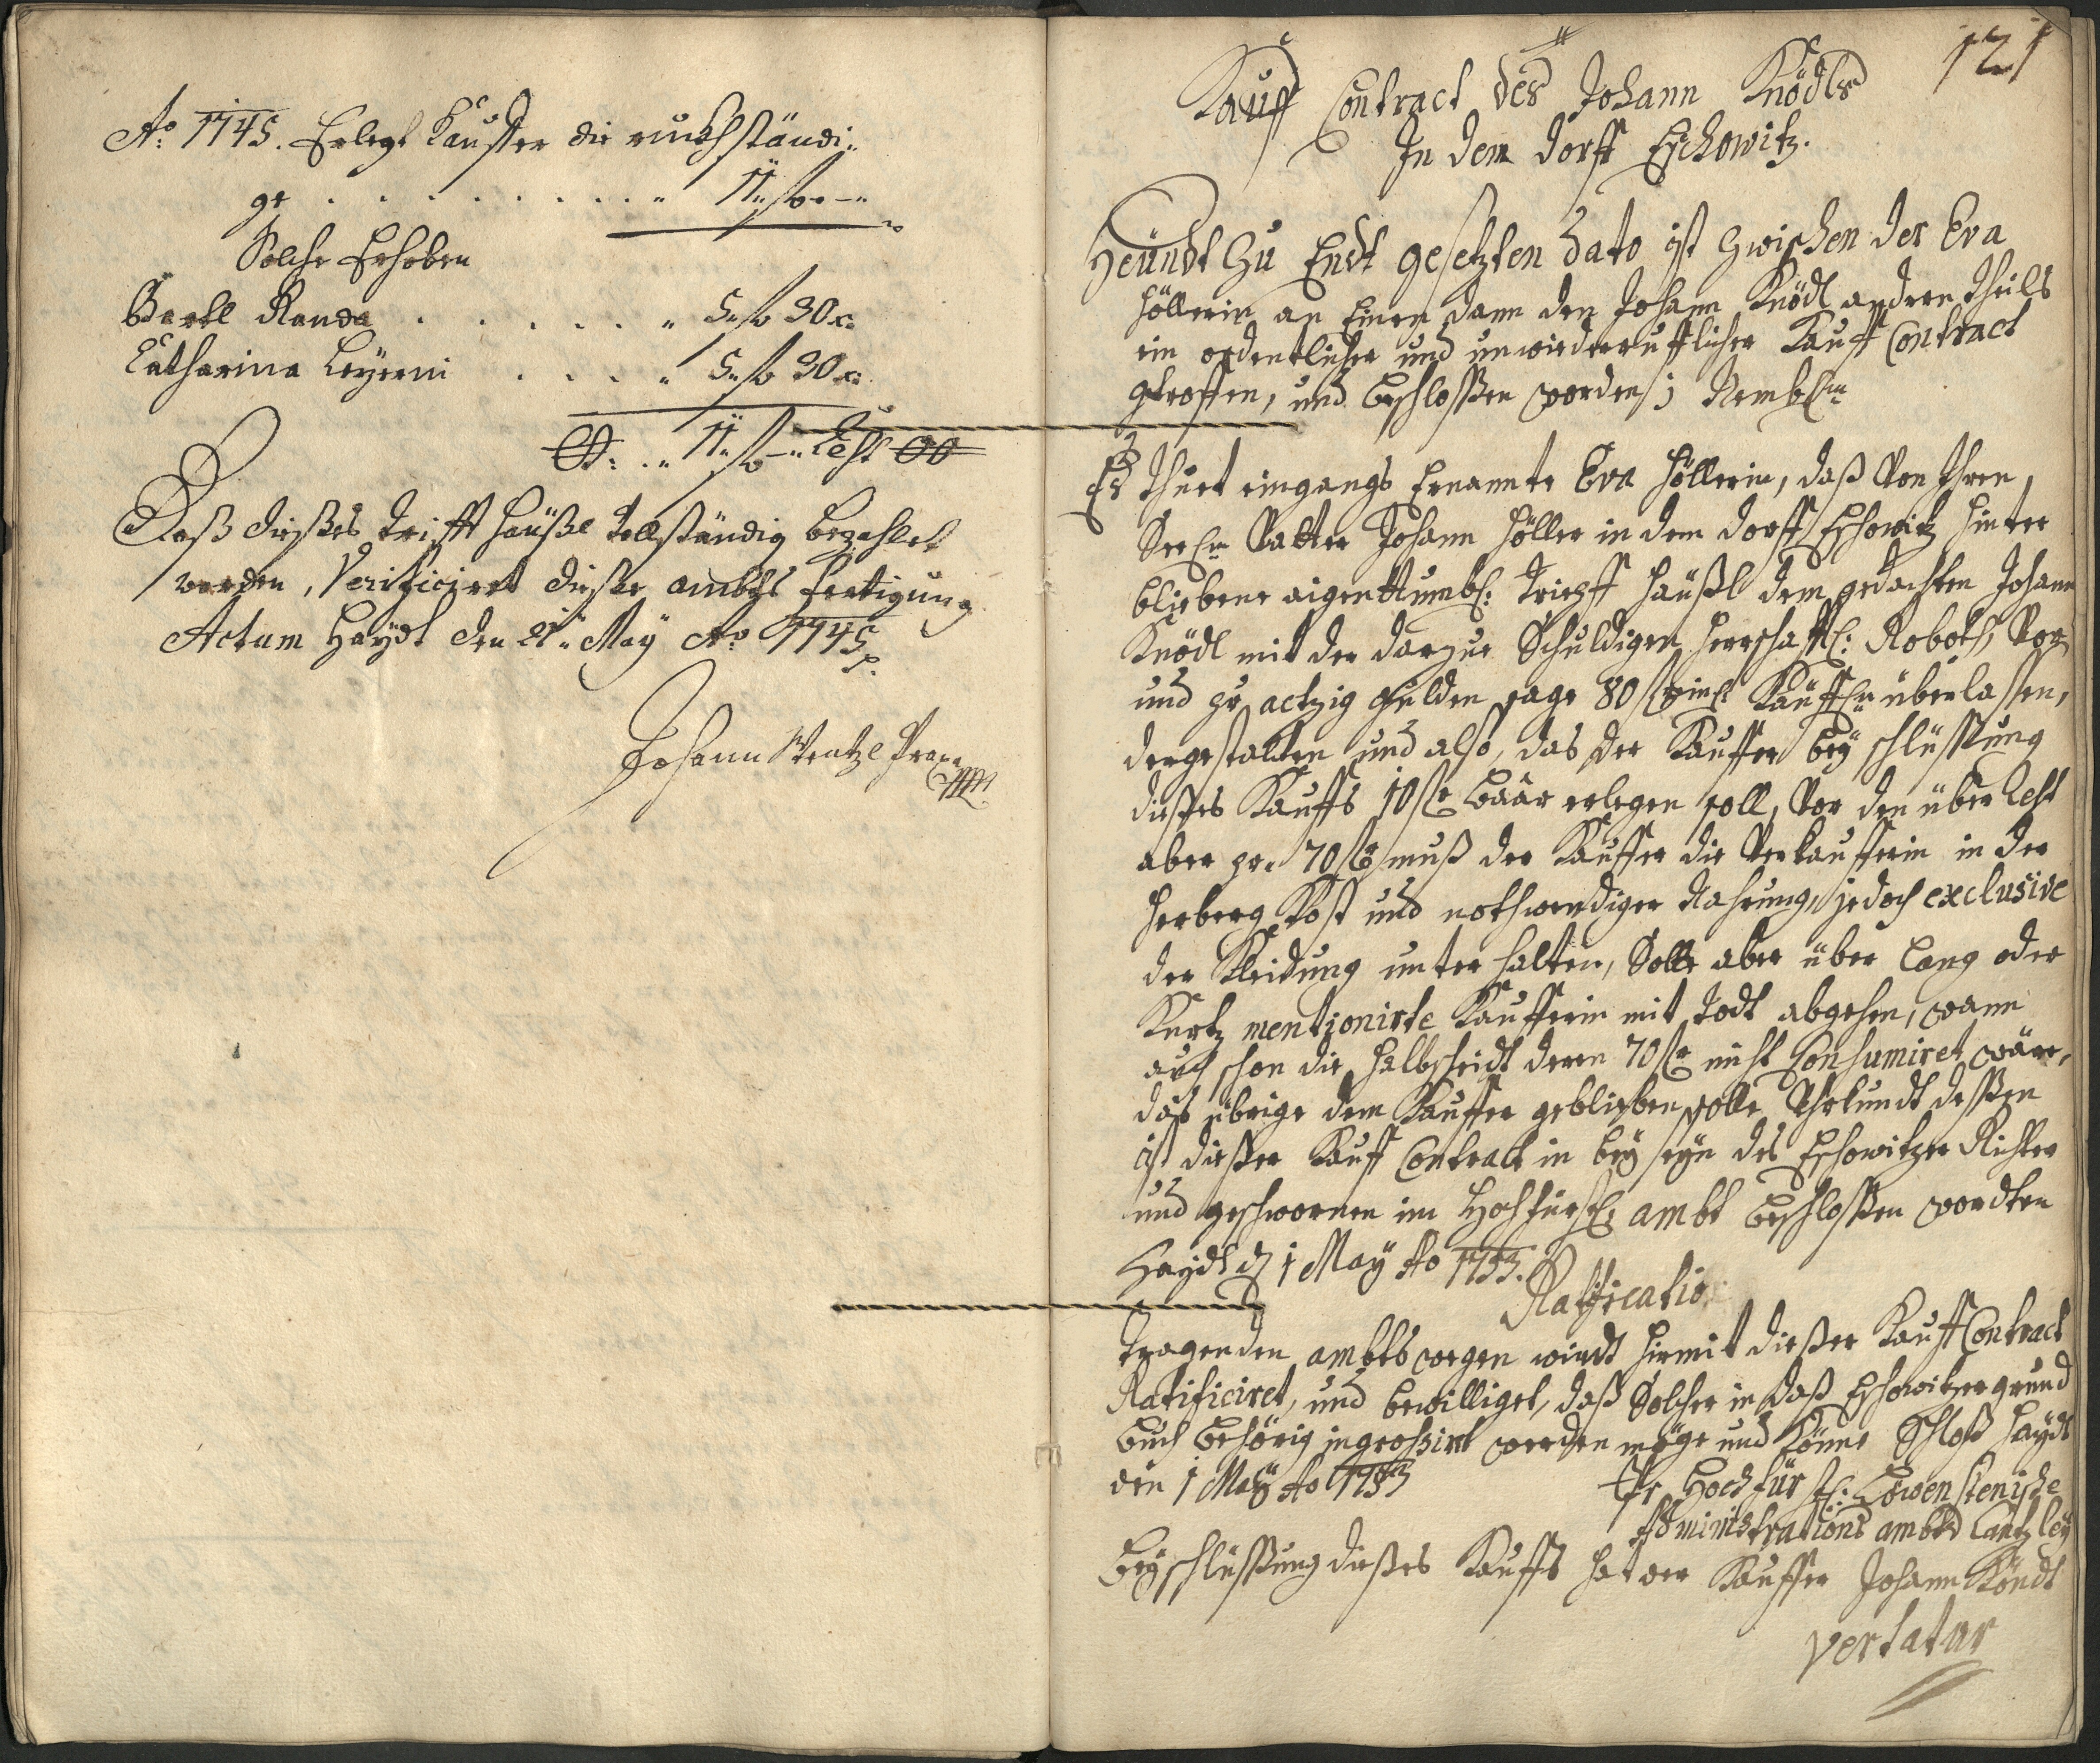 Ao. 1745. Erlegt Kauffer die ruckhständi-
ge . . . . . . . . . 11 f. –
Solche Erhoben
Bartl Randa . . . . . 5 f. 30 x.
Catharina Leyerin . . . . 5 f. 30 x.
11 f. – Rest 00
Daß dießes Trifft Häußl vollständig bezahlet
worden, Verificiret dießer ambts fertigung
Actum Haydt den 21. May Ao 1745
Johann Wentzl
121
Kauff Contract des Johann Knödls
In dem dorff Eschowitz.
Heündt Zu Endt gesetzten Dato ist Zwischen der Eva
Höllerin an Einen dann den Johann Knödl andern theils
ein ordentlicher und unwiederrufflicher Kauff Contract
getroffen, und beschloßen worden; Nembl:
Es thuet eingangs Ernannte Eva Höllerin, daß von Ihren
Seel: Vatter Johann Höller in dem dorff Eschowitz hinter
bliebene aigenthumbl: Trifft Häußl dem gedachten Johann
Knödl mit der darzue Schuldigen Herrschaftl: Roboth, vor
und pr actzig gulden sage 80 f Kauffl: überlassen,
dergestalten und also, das der Kauffer bey schlüssung
dießes Kauffs 10 f baar erlegen soll, vor den über Rest
aber pr. 70 f muß der Kauffer die Verkaufferin in der
Herberg Kost und nothwendiger Nahrung, jedoch exclusive
der Kleidung unter halten, Solle aber über lang oder
Kurtz mentionirte Kaufferin mit Todt abgehen, wann
auch schon die Halbscheidt deren 70 f nicht Consumiret wäre,
daß übrige dem Kauffer geblieben solle Uhrkundt deßen
ist dießer Kauff Contract in bey seyn des Eschowitzer Richter
und geschwornen im Hochfürstl: ambt beschloßen wordten
Haydt d 1 May Ao 1733.
Ratification
Tragenden ambts wegen wirdt hirmit dießer Kauff Contract
Ratificiret, und bewilliget, daß Solcher in daß Eschowitzer grund
buch behörig ingrossirt werden möge und Könne Schloß Haydt
den 1 May Ao 1733
Hochfürstl: Löwensteinische
Administrations ambts Cantzley
Bey schlüssung dießes Kauffs hat der Kauffer Johann Knödl
vertatur